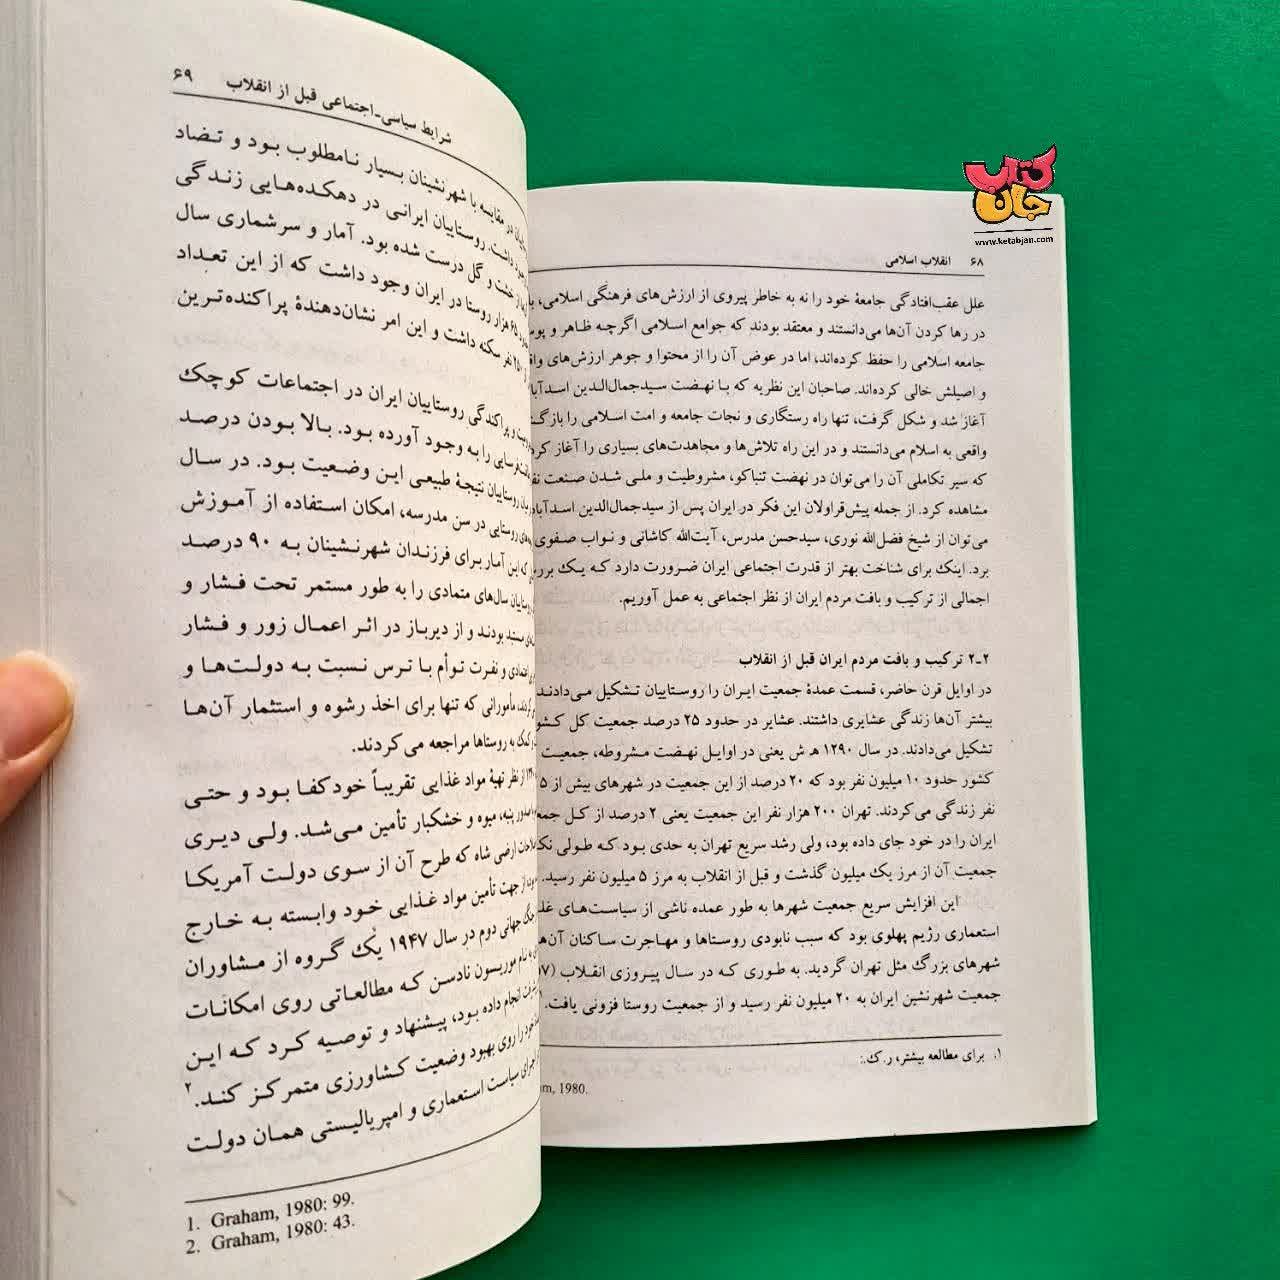 کتاب
جان
www.ketabjan.com
۶۸ انقلاب اسلامی
علل عقب‌افتادگی جامعهٔ خود را نه به خاطر پیروی از ارزش‌های فرهنگی اسلامی،
در رها کردن آن‌ها می‌دانستند و معتقد بودند که جوامع اسلامی اگرچه ظاهر و
جامعه اسلامی را حفظ کرده‌اند، اما در عوض آن را از محتوا و جوهر ارزش‌های
و اصیلش خالی کرده‌اند. صاحبان این نظریه که با نهضت سیدجمال‌الدین
آغاز شد و شکل گرفت، تنها راه رستگاری و نجات جامعه و امت اسلامی را
واقعی به اسلام می‌دانستند و در این راه تلاش‌ها و مجاهدت‌های بسیاری را آغاز
که سیر تکاملی آن را می‌توان در نهضت تنباکو، مشروطیت و ملی شدن صنعت
مشاهده کرد. از جمله پیش‌قراولان این فکر در ایران پس از سیدجمال‌الدین
می‌توان از شیخ فضل‌الله نوری، سیدحسن مدرس، آیت‌الله کاشانی و نواب صفوی
برد. اینک برای شناخت بهتر از قدرت اجتماعی ایران ضرورت دارد که یک
اجمالی از ترکیب و بافت مردم ایران از نظر اجتماعی به عمل آوریم.
۲ـ۲ ترکیب و بافت مردم ایران قبل از انقلاب
در اوایل قرن حاضر، قسمت عمدهٔ جمعیت ایران را روستاییان تشکیل می‌دادند
بیشتر آن‌ها زندگی عشایری داشتند. عشایر در حدود ۲۵ درصد جمعیت کل
تشکیل می‌دادند. در سال ۱۲۹۰ هـ ش یعنی در اوایل نهضت مشروطه، جمعیت
کشور حدود ۱۰ میلیون نفر بود که ۲۰ درصد از این جمعیت در شهرهای بیش از
نفر زندگی می‌کردند. تهران ۲۰۰ هزار نفر این جمعیت یعنی ۲ درصد از کل
ایران را در خود جای داده بود، ولی رشد سریع تهران به حدی بود که طولی
جمعیت آن از مرز یک میلیون گذشت و قبل از انقلاب به مرز ۵ میلیون نفر رسید.
این افزایش سریع جمعیت شهرها به طور عمده ناشی از سیاست‌های
استعماری رژیم پهلوی بود که سبب نابودی روستاها و مهاجرت ساکنان
شهرهای بزرگ مثل تهران گردید. به طوری که در سال پیروزی انقلاب
جمعیت شهرنشین ایران به ۲۰ میلیون نفر رسید و از جمعیت روستا فزونی یافت.
۱. برای مطالعه بیشتر، ر.ک.:
1980.
شرایط سیاسی-اجتماعی قبل از انقلاب ۶۹
در مقایسه با شهرنشینان بسیار نامطلوب بود و تضاد
داشت. روستاییان ایرانی در دهکده‌هایی زندگی
از خشت و گل درست شده بود. آمار و سرشماری سال
هزار روستا در ایران وجود داشت که از این تعداد
نفر سکنه داشت و این امر نشان‌دهندهٔ پراکنده‌ترین
و پراکندگی روستاییان ایران در اجتماعات کوچک
را به وجود آورده بود. بالا بودن درصد
روستاییان نتیجهٔ طبیعی این وضعیت بود. در سال
روستایی در سن مدرسه، امکان استفاده از آموزش
که این آمار برای فرزندان شهرنشینان به ۹۰ درصد
سال‌های متمادی را به طور مستمر تحت فشار و
بودند و از دیرباز در اثر اعمال زور و فشار
و نفرت توأم با ترس نسبت به دولت‌ها و
مأمورانی که تنها برای اخذ رشوه و استثمار آن‌ها
کمک به روستاها مراجعه می‌کردند.
از نظر تهیهٔ مواد غذایی تقریباً خودکفا بود و حتی
پنبه، میوه و خشکبار تأمین می‌شد. ولی دیری
ارضی شاه که طرح آن از سوی دولت آمریکا
از جهت تأمین مواد غذایی خود وابسته به خارج
جنگ جهانی دوم در سال ۱۹۴۷ یک گروه از مشاوران
به نام موریسون نادسن که مطالعاتی روی امکانات
انجام داده بود، پیشنهاد و توصیه کرد که این
را روی بهبود وضعیت کشاورزی متمرکز کند.۲
سیاست استعماری و امپریالیستی همان دولت
1. Graham, 1980: 99.
2. Graham, 1980: 43.